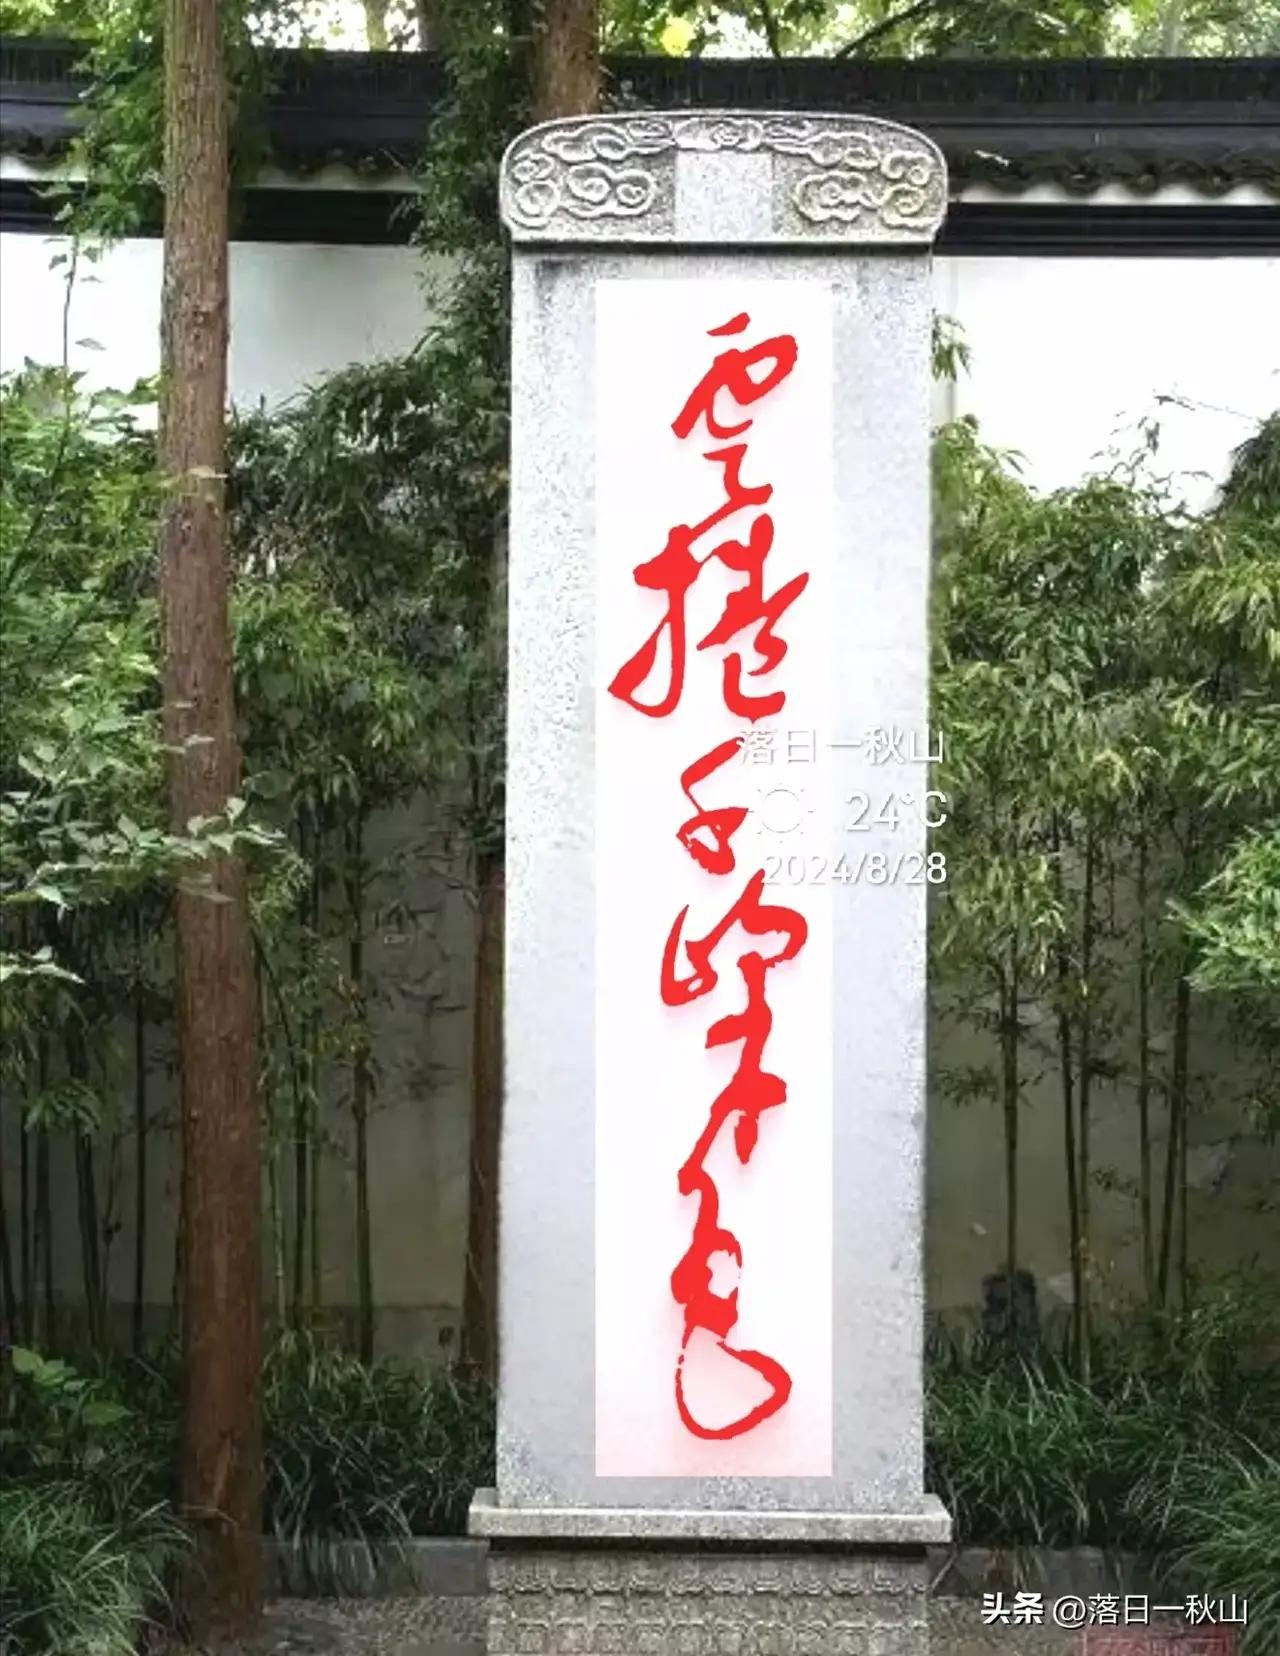 雲捲千峯色
落日一秋山
24°C
2024/8/28
头条 @落日一秋山